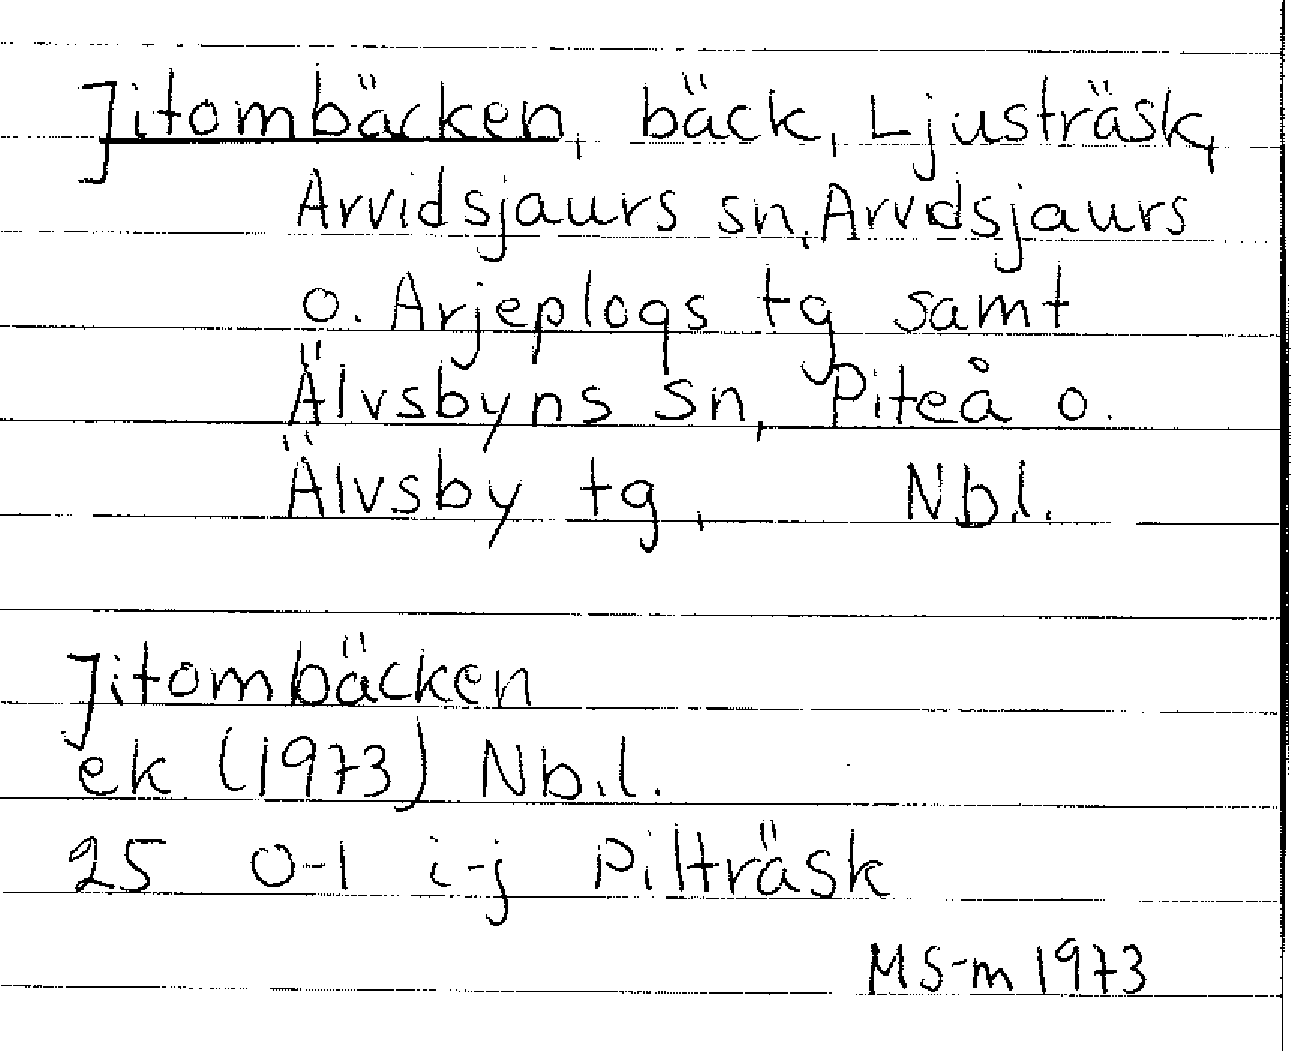 Jitombäcken, bäck, Ljusträsk,
Arvidsjaurs sn, Arvidsjaurs
o. Arjeplogs tg samt
Älvsbyns sn, Piteå o.
Älvsby tg, Nb.l.
Jitombäcken
ek (1973) Nb.l.
25 0-1 i-j Pilträsk
MS-m 1973